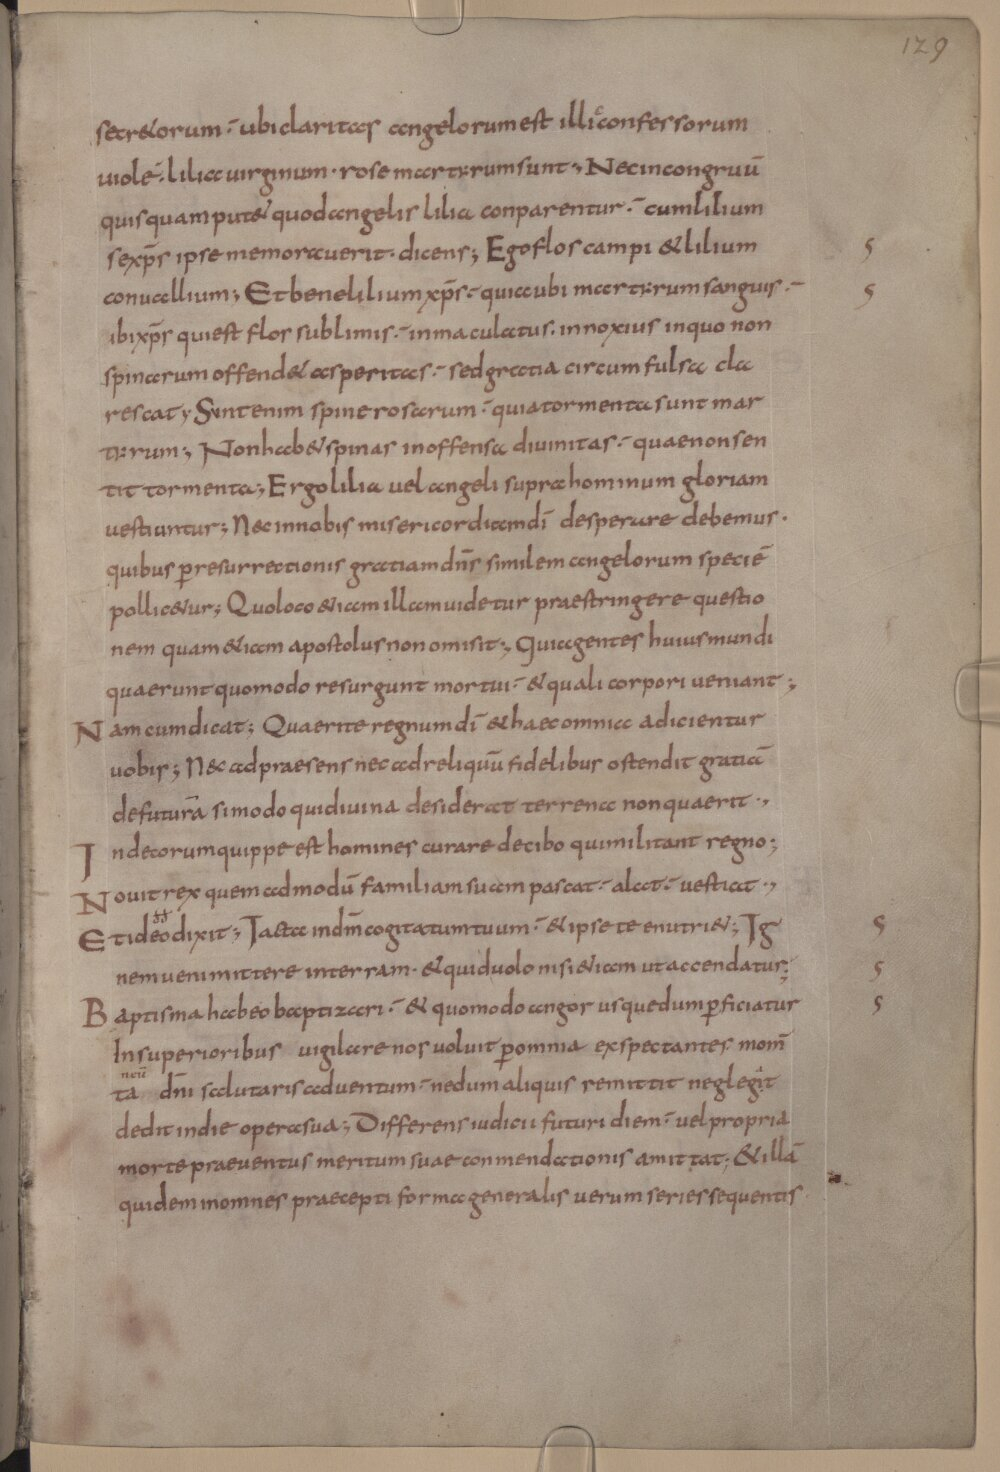 129
secr&orum ÷ ubi claritas angelorum est illic confessorum
uiole ÷ lilia uirginum · rose martyrum sunt ; Nec incongruū
quisquam put& quod angelis lilia conparentur ÷ cum lilium
se xp̄s ipse memorauerit · dicens ; Ego flos campi & lilium
conuallium ; Et bene lilium xp̄s ÷ quia ubi martyrum sanguis ÷
ibi xp̄s qui est flos sublimis ÷ inmaculatus · innoxius in quo non
spinarum offend& asperitas ÷ sed gratia circumfulsa cla
rescat ; Sunt enim spine rosarum ÷ quia tormenta sunt mar
tyrum ; Non hab& spinas inoffensa diuinitas ÷ quae non sen
tit tormenta ; Ergo lilia uel angeli supra hominum gloriam
uestiuntur ; Nec in nobis misericordiam dī desperare debemus ·
quibus p̄ resurrectionis gratiam dn̄s similem angelorum speciē
pollic&ur ; Quo loco &iam illam uidetur praestringere questio
nem quam &iam apostolus non omisit ; Quia gentes huius mundi
quaerunt quomodo resurgunt mortui ÷ & quali corpori ueniant ;
Nam cum dicat ; Quaerite regnum dī & haec omnia adicientur
uobis ; Nec ad praesens nec ad reliquū fidelibus ostendit gratiā
de futura si modo qui diuina desiderat terrena non quaerit ·,
Indecorum quippe est homines curare de cibo qui militant regno ;
Nouit rex quem ad modū familiam suam pascat ÷ alat ÷ uestiat ·,
Et ideo dixit ; Iacta in dn̄m cogitatum tuum ÷ & ipse te enutri& ; Ig
nem ueni mittere in terram · & quid uolo nisi &iam ut accendatur ;
Baptisma habeo baptizari ÷ & quomodo angor usque dum p̄ficiatur
In superioribus uigilare nos uoluit p̄ omnia exspectantes mom̄
ta dn̄i salutaris aduentum ÷ ne dum aliquis remittit neglegit
dedit in die opera sua ; Differens iudicii futuri diem ÷ uel propria
morte praeuentus meritum suae conmendationis amittat ; & illā
quidem in omnes praecepti forma generalis uerum series sequentis